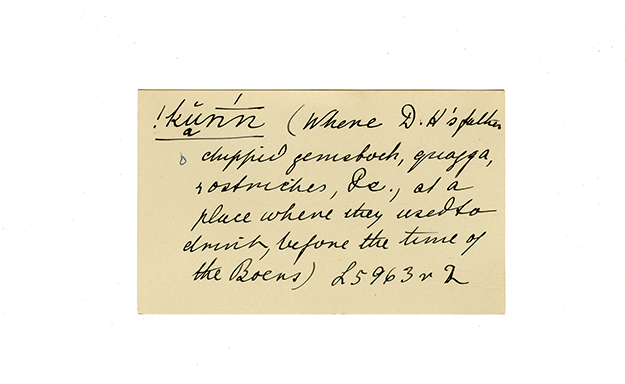 !kṵ̆n̄´n (Where D. H's father
chipped gemsbock, quagga,
ostriches, &c., at a
place where they used to
drink, before the time of
the Boers) L5963 r 2